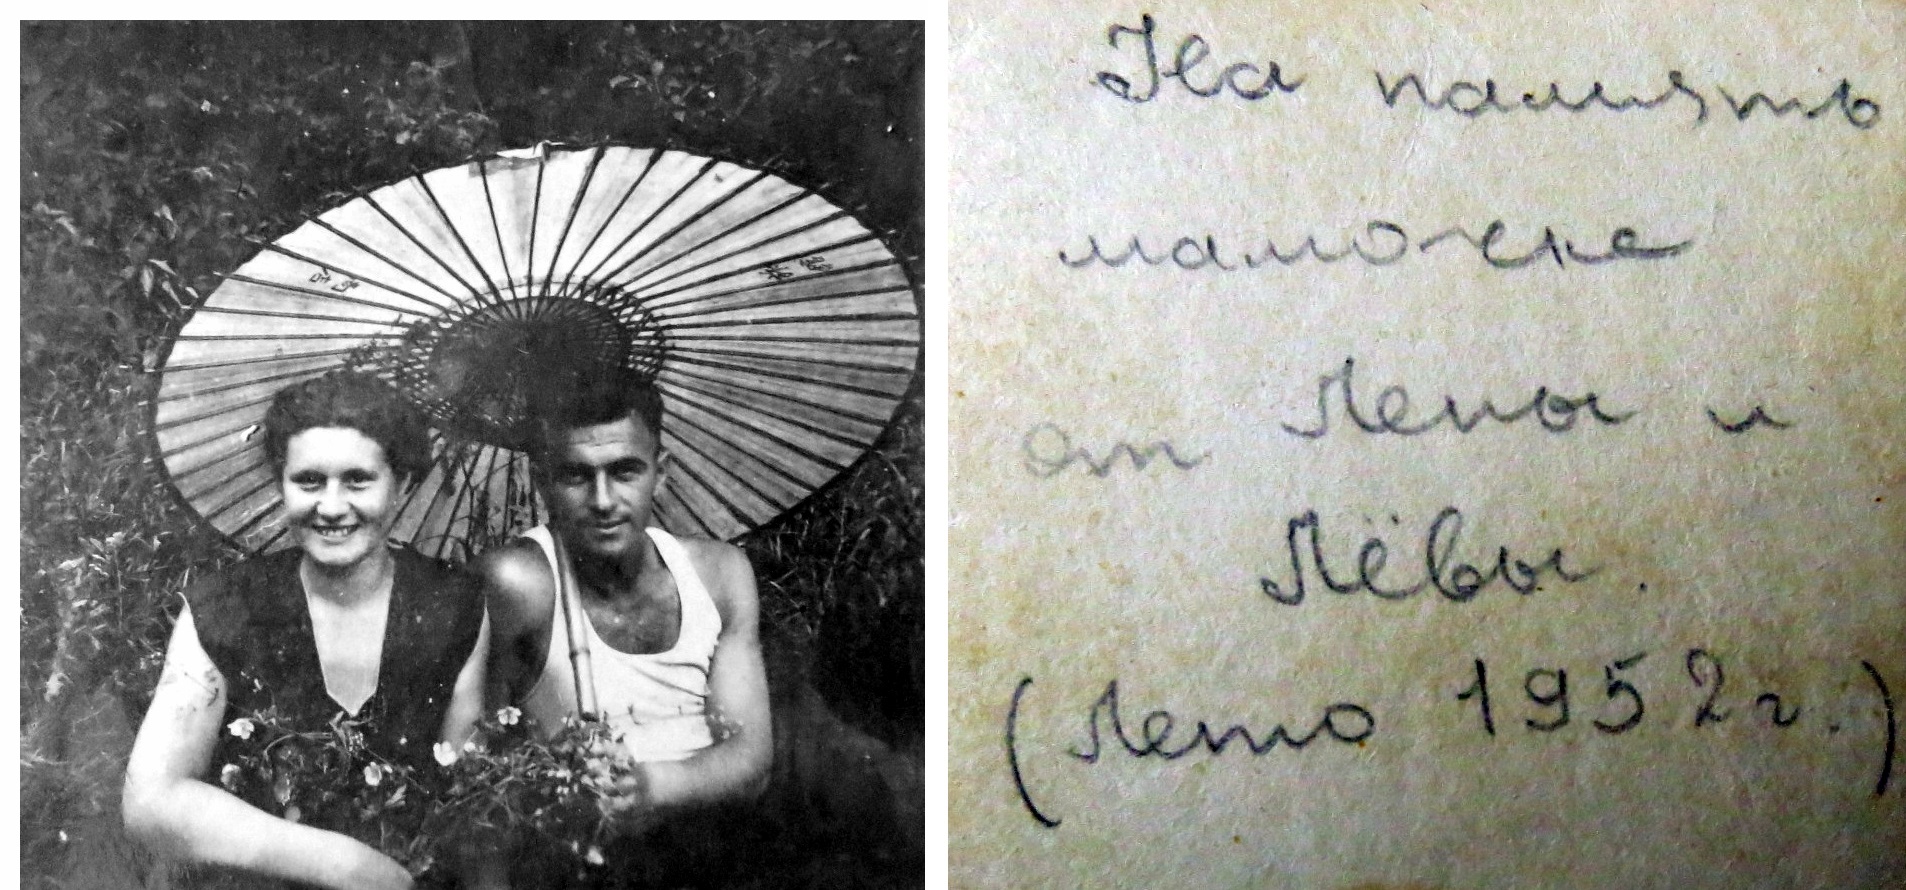 На память
мамочке
от Лены и
Лёвы.
(Лето 1952 г.)